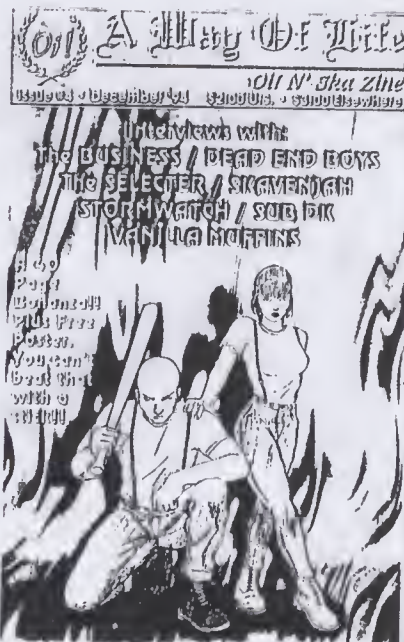 Oi!
A Way Of Life
Oi! N' Ska Zine
Issue #4 • December '94 $2.00 U.S. • $3.00 Elsewhere
Interviews with:
The BUSINESS / DEAD END BOYS
The SELECTER / SKAVENJAH
STORMWATCH / SUB DK
VANILLA MUFFINS
A 40
Page
Bonanza!!
Plus Free
Poster.
You can't
beat that
with a
stick!!